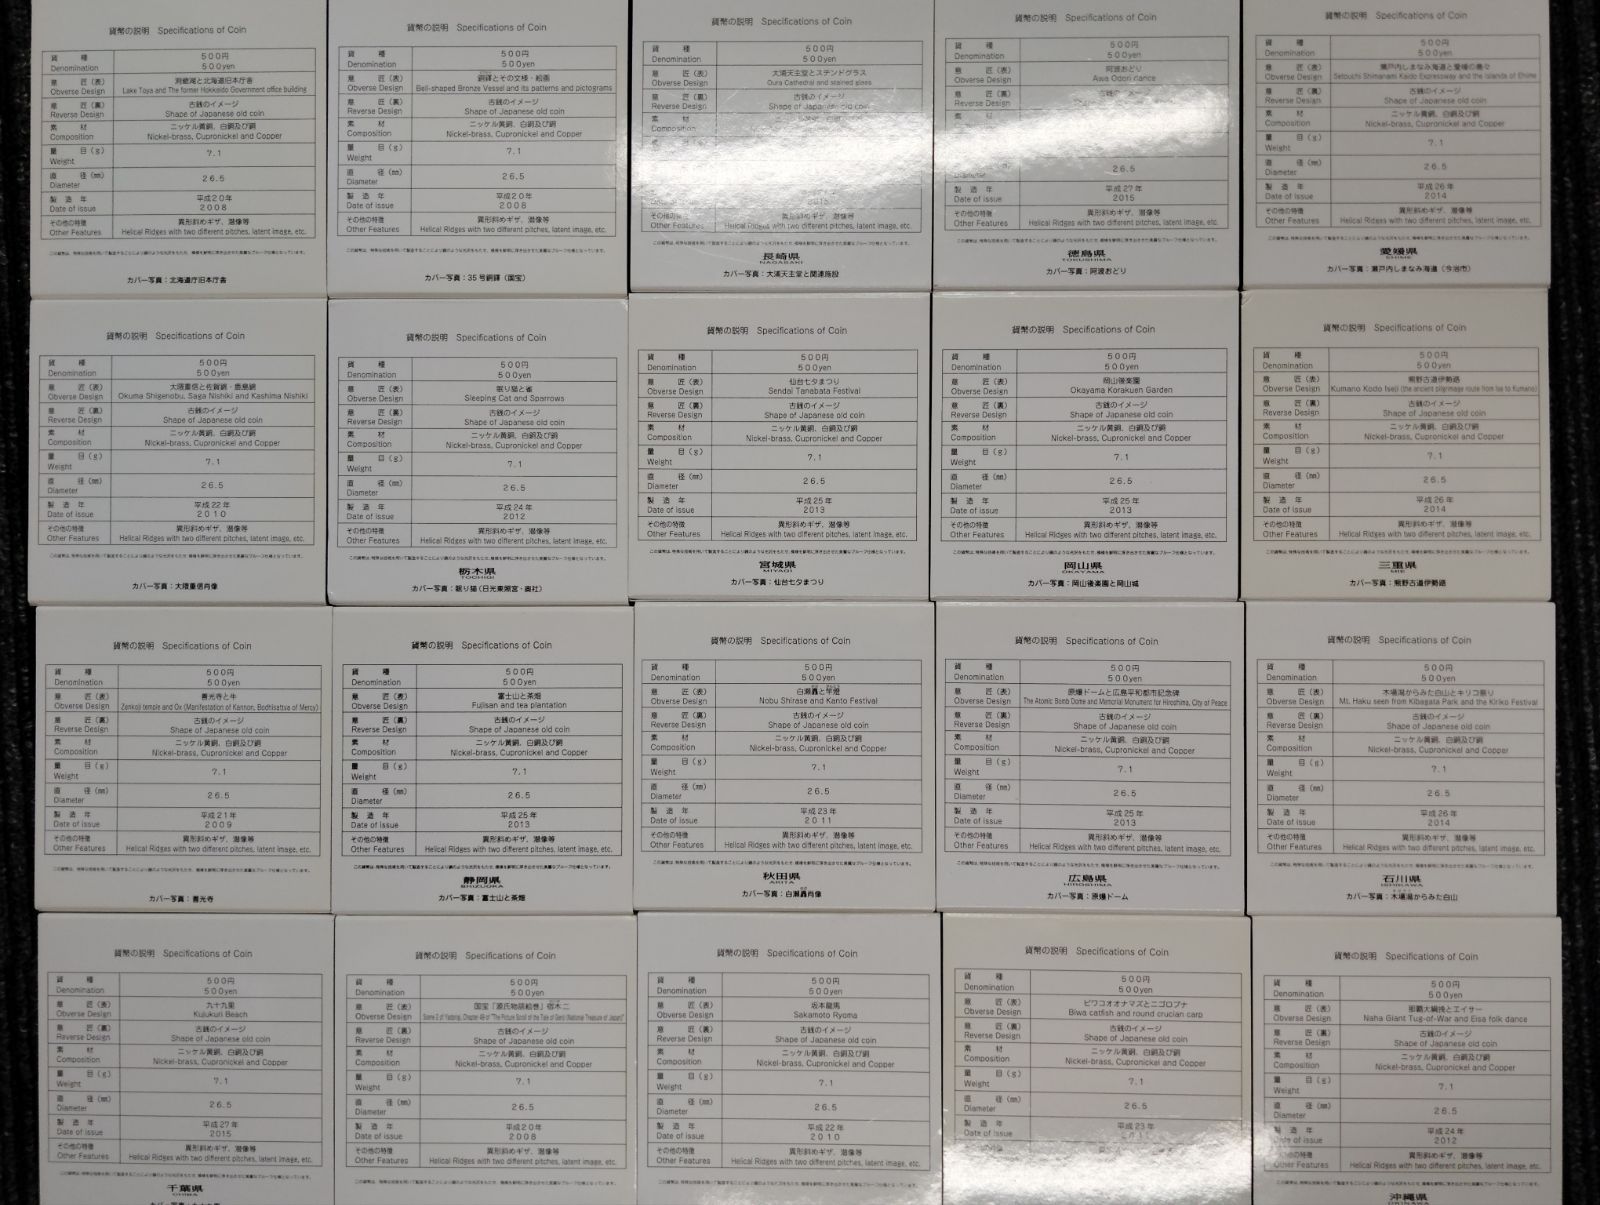 貨幣の説明 Specifications of Coin
貨種 Denomination 500円 500yen
意匠(表) Obverse Design 洞爺湖と北海道旧本庁舎 Lake Toya and The former Hokkaido Government office building
意匠(裏) Reverse Design 古銭のイメージ Shape of Japanese old coin
素材 Composition ニッケル黄銅、白銅及び銅 Nickel-brass, Cupronickel and Copper
量目(g) Weight 7.1
直径(㎜) Diameter 26.5
製造年 Date of issue 平成20年 2008
その他の特徴 Other Features 異形斜めギザ、潜像等 Helical Ridges with two different pitches, latent image, etc.
カバー写真:北海道庁旧本庁舎
貨幣の説明 Specifications of Coin
貨種 Denomination 500円 500yen
意匠(表) Obverse Design 銅鐸とその文様・絵画 Bell-shaped Bronze Vessel and its patterns and pictograms
意匠(裏) Reverse Design 古銭のイメージ Shape of Japanese old coin
素材 Composition ニッケル黄銅、白銅及び銅 Nickel-brass, Cupronickel and Copper
量目(g) Weight 7.1
直径(㎜) Diameter 26.5
製造年 Date of issue 平成20年 2008
その他の特徴 Other Features 異形斜めギザ、潜像等 Helical Ridges with two different pitches, latent image, etc.
カバー写真:35号銅鐸(国宝)
貨幣の説明 Specifications of Coin
貨種 Denomination 500円 500yen
意匠(表) Obverse Design 大浦天主堂とステンドグラス Oura Cathedral and stained glass
意匠(裏) Reverse Design 古銭のイメージ Shape of Japanese old coin
素材 Composition
2015
その他の特徴 Other Features 異形斜めギザ、潜像等 Helical Ridges with two different pitches, latent image, etc.
長崎県
NAGASAKI
カバー写真:大浦天主堂と関連施設
貨幣の説明 Specifications of Coin
貨種 Denomination 500円 500yen
意匠(表) Obverse Design 阿波おどり Awa Odori dance
意匠(裏) Reverse Design
直径(㎜) Diameter 26.5
製造年 Date of issue 平成27年 2015
その他の特徴 Other Features 異形斜めギザ、潜像等 Helical Ridges with two different pitches, latent image, etc.
徳島県
TOKUSHIMA
カバー写真:阿波おどり
貨幣の説明 Specifications of Coin
貨種 Denomination 500円 500yen
意匠(表) Obverse Design 瀬戸内しまなみ海道と愛媛の島々 Setouchi Shimanami Kaido Expressway and the islands of Ehime
意匠(裏) Reverse Design 古銭のイメージ Shape of Japanese old coin
素材 Composition ニッケル黄銅、白銅及び銅 Nickel-brass, Cupronickel and Copper
量目(g) Weight 7.1
直径(㎜) Diameter 26.5
製造年 Date of issue 平成26年 2014
その他の特徴 Other Features 異形斜めギザ、潜像等 Helical Ridges with two different pitches, latent image, etc.
愛媛県
EHIME
カバー写真:瀬戸内しまなみ海道(今治市)
貨幣の説明 Specifications of Coin
貨種 Denomination 500円 500yen
意匠(表) Obverse Design 大隈重信と佐賀錦・鹿島錦 Okuma Shigenobu, Saga Nishiki and Kashima Nishiki
意匠(裏) Reverse Design 古銭のイメージ Shape of Japanese old coin
素材 Composition ニッケル黄銅、白銅及び銅 Nickel-brass, Cupronickel and Copper
量目(g) Weight 7.1
直径(㎜) Diameter 26.5
製造年 Date of issue 平成22年 2010
その他の特徴 Other Features 異形斜めギザ、潜像等 Helical Ridges with two different pitches, latent image, etc.
カバー写真:大隈重信肖像
貨幣の説明 Specifications of Coin
貨種 Denomination 500円 500yen
意匠(表) Obverse Design 眠り猫と雀 Sleeping Cat and Sparrows
意匠(裏) Reverse Design 古銭のイメージ Shape of Japanese old coin
素材 Composition ニッケル黄銅、白銅及び銅 Nickel-brass, Cupronickel and Copper
量目(g) Weight 7.1
直径(㎜) Diameter 26.5
製造年 Date of issue 平成24年 2012
その他の特徴 Other Features 異形斜めギザ、潜像等 Helical Ridges with two different pitches, latent image, etc.
栃木県
TOCHIGI
カバー写真:眠り猫(日光東照宮・奥社)
貨幣の説明 Specifications of Coin
貨種 Denomination 500円 500yen
意匠(表) Obverse Design 仙台七夕まつり Sendai Tanabata Festival
意匠(裏) Reverse Design 古銭のイメージ Shape of Japanese old coin
素材 Composition ニッケル黄銅、白銅及び銅 Nickel-brass, Cupronickel and Copper
量目(g) Weight 7.1
直径(㎜) Diameter 26.5
製造年 Date of issue 平成25年 2013
その他の特徴 Other Features 異形斜めギザ、潜像等 Helical Ridges with two different pitches, latent image, etc.
宮城県
MIYAGI
カバー写真:仙台七夕まつり
貨幣の説明 Specifications of Coin
貨種 Denomination 500円 500yen
意匠(表) Obverse Design 岡山後楽園 Okayama Korakuen Garden
意匠(裏) Reverse Design 古銭のイメージ Shape of Japanese old coin
素材 Composition ニッケル黄銅、白銅及び銅 Nickel-brass, Cupronickel and Copper
量目(g) Weight 7.1
直径(㎜) Diameter 26.5
製造年 Date of issue 平成25年 2013
その他の特徴 Other Features 異形斜めギザ、潜像等 Helical Ridges with two different pitches, latent image, etc.
岡山県
OKAYAMA
カバー写真:岡山後楽園と岡山城
貨幣の説明 Specifications of Coin
貨種 Denomination 500円 500yen
意匠(表) Obverse Design 熊野古道伊勢路 Kumano Kodo Iseji (the ancient pilgrimage route from Ise to Kumano)
意匠(裏) Reverse Design 古銭のイメージ Shape of Japanese old coin
素材 Composition ニッケル黄銅、白銅及び銅 Nickel-brass, Cupronickel and Copper
量目(g) Weight 7.1
直径(㎜) Diameter 26.5
製造年 Date of issue 平成26年 2014
その他の特徴 Other Features 異形斜めギザ、潜像等 Helical Ridges with two different pitches, latent image, etc.
三重県
MIE
カバー写真:熊野古道伊勢路
貨幣の説明 Specifications of Coin
貨種 Denomination 500円 500yen
意匠(表) Obverse Design 善光寺と牛 Zenkoji temple and Ox (Manifestation of Kannon, Bodhisattva of Mercy)
意匠(裏) Reverse Design 古銭のイメージ Shape of Japanese old coin
素材 Composition ニッケル黄銅、白銅及び銅 Nickel-brass, Cupronickel and Copper
量目(g) Weight 7.1
直径(㎜) Diameter 26.5
製造年 Date of issue 平成21年 2009
その他の特徴 Other Features 異形斜めギザ、潜像等 Helical Ridges with two different pitches, latent image, etc.
カバー写真:善光寺
貨幣の説明 Specifications of Coin
貨種 Denomination 500円 500yen
意匠(表) Obverse Design 富士山と茶畑 Fujisan and tea plantation
意匠(裏) Reverse Design 古銭のイメージ Shape of Japanese old coin
素材 Composition ニッケル黄銅、白銅及び銅 Nickel-brass, Cupronickel and Copper
量目(g) Weight 7.1
直径(㎜) Diameter 26.5
製造年 Date of issue 平成25年 2013
その他の特徴 Other Features 異形斜めギザ、潜像等 Helical Ridges with two different pitches, latent image, etc.
静岡県
SHIZUOKA
カバー写真:富士山と茶畑
貨幣の説明 Specifications of Coin
貨種 Denomination 500円 500yen
意匠(表) Obverse Design 白瀬矗と竿燈 Nobu Shirase and Kanto Festival
意匠(裏) Reverse Design 古銭のイメージ Shape of Japanese old coin
素材 Composition ニッケル黄銅、白銅及び銅 Nickel-brass, Cupronickel and Copper
量目(g) Weight 7.1
直径(㎜) Diameter 26.5
製造年 Date of issue 平成23年 2011
その他の特徴 Other Features 異形斜めギザ、潜像等 Helical Ridges with two different pitches, latent image, etc.
秋田県
AKITA
カバー写真:白瀬矗肖像
貨幣の説明 Specifications of Coin
貨種 Denomination 500円 500yen
意匠(表) Obverse Design 原爆ドームと広島平和都市記念碑 The Atomic Bomb Dome and Memorial Monument for Hiroshima, City of Peace
意匠(裏) Reverse Design 古銭のイメージ Shape of Japanese old coin
素材 Composition ニッケル黄銅、白銅及び銅 Nickel-brass, Cupronickel and Copper
量目(g) Weight 7.1
直径(㎜) Diameter 26.5
製造年 Date of issue 平成25年 2013
その他の特徴 Other Features 異形斜めギザ、潜像等 Helical Ridges with two different pitches, latent image, etc.
広島県
HIROSHIMA
カバー写真:原爆ドーム
貨幣の説明 Specifications of Coin
貨種 Denomination 500円 500yen
意匠(表) Obverse Design 木場潟からみた白山とキリコ祭り Mt. Haku seen from Kibagata Park and the Kiriko Festival
意匠(裏) Reverse Design 古銭のイメージ Shape of Japanese old coin
素材 Composition ニッケル黄銅、白銅及び銅 Nickel-brass, Cupronickel and Copper
量目(g) Weight 7.1
直径(㎜) Diameter 26.5
製造年 Date of issue 平成26年 2014
その他の特徴 Other Features 異形斜めギザ、潜像等 Helical Ridges with two different pitches, latent image, etc.
石川県
ISHIKAWA
カバー写真:木場潟からみた白山
貨幣の説明 Specifications of Coin
貨種 Denomination 500円 500yen
意匠(表) Obverse Design 九十九里 Kujukuri Beach
意匠(裏) Reverse Design 古銭のイメージ Shape of Japanese old coin
素材 Composition ニッケル黄銅、白銅及び銅 Nickel-brass, Cupronickel and Copper
量目(g) Weight 7.1
直径(㎜) Diameter 26.5
製造年 Date of issue 平成27年 2015
その他の特徴 Other Features 異形斜めギザ、潜像等 Helical Ridges with two different pitches, latent image, etc.
千葉県
CHIBA
貨幣の説明 Specifications of Coin
貨種 Denomination 500円 500yen
意匠(表) Obverse Design 国宝「源氏物語絵巻」宿木二 Scene 2 of Yadorigi, Chapter 49 of "The Picture Scroll of the Tale of Genji (National Treasure of Japan)"
意匠(裏) Reverse Design 古銭のイメージ Shape of Japanese old coin
素材 Composition ニッケル黄銅、白銅及び銅 Nickel-brass, Cupronickel and Copper
量目(g) Weight 7.1
直径(㎜) Diameter 26.5
製造年 Date of issue 平成20年 2008
その他の特徴 Other Features 異形斜めギザ、潜像等 Helical Ridges with two different pitches, latent image, etc.
貨幣の説明 Specifications of Coin
貨種 Denomination 500円 500yen
意匠(表) Obverse Design 坂本龍馬 Sakamoto Ryoma
意匠(裏) Reverse Design 古銭のイメージ Shape of Japanese old coin
素材 Composition ニッケル黄銅、白銅及び銅 Nickel-brass, Cupronickel and Copper
量目(g) Weight 7.1
直径(㎜) Diameter 26.5
製造年 Date of issue 平成22年 2010
その他の特徴 Other Features 異形斜めギザ、潜像等 Helical Ridges with two different pitches, latent image, etc.
貨幣の説明 Specifications of Coin
貨種 Denomination 500円 500yen
意匠(表) Obverse Design ビワコオオナマズとニゴロブナ Biwa catfish and round crucian carp
意匠(裏) Reverse Design 古銭のイメージ Shape of Japanese old coin
素材 Composition ニッケル黄銅、白銅及び銅 Nickel-brass, Cupronickel and Copper
量目(g) Weight 7.1
直径(㎜) Diameter 26.5
製造年 Date of issue 平成23年
貨幣の説明 Specifications of Coin
貨種 Denomination 500円 500yen
意匠(表) Obverse Design 那覇大綱挽とエイサー Naha Giant Tug-of-War and Eisa folk dance
意匠(裏) Reverse Design 古銭のイメージ Shape of Japanese old coin
素材 Composition ニッケル黄銅、白銅及び銅 Nickel-brass, Cupronickel and Copper
量目(g) Weight 7.1
直径(㎜) Diameter 26.5
製造年 Date of issue 平成24年 2012
その他の特徴 Other Features 異形斜めギザ、潜像等 Helical Ridges with two different pitches, latent image, etc.
沖縄県